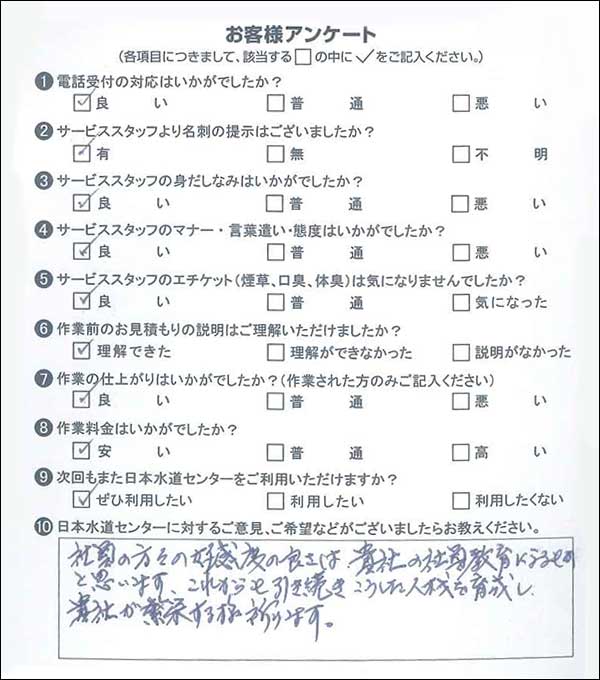 お客様アンケート
(各項目につきまして、該当する□の中に✓をご記入ください。)
❶電話受付の対応はいかがでしたか?
☑良い □普通 □悪い
❷サービススタッフより名刺の提示はございましたか?
☑有 □無 □不明
❸サービススタッフの身だしなみはいかがでしたか?
☑良い □普通 □悪い
❹サービススタッフのマナー・言葉遣い・態度はいかがでしたか?
☑良い □普通 □悪い
❺サービススタッフのエチケット(煙草、口臭、体臭)は気になりませんでしたか?
☑良い □普通 □気になった
❻作業前のお見積もりの説明はご理解いただけましたか?
☑理解できた □理解ができなかった □説明がなかった
❼作業の仕上がりはいかがでしたか?(作業された方のみご記入ください)
☑良い □普通 □悪い
❽作業料金はいかがでしたか?
☑安い □普通 □高い
❾次回もまた日本水道センターをご利用いただけますか?
☑ぜひ利用したい □利用したい □利用したくない
❿日本水道センターに対するご意見、ご希望などがございましたらお教えください。
社員の方々の好感度の良さは、貴社の社員教育によるもの
と思います。これからも引き続きこうした人材を育成し
貴社が繁栄する様祈ります。